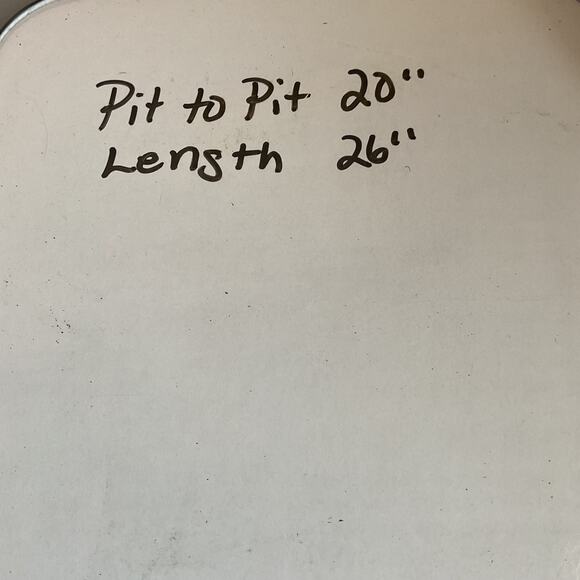 Pit to Pit 20"
Length 26"